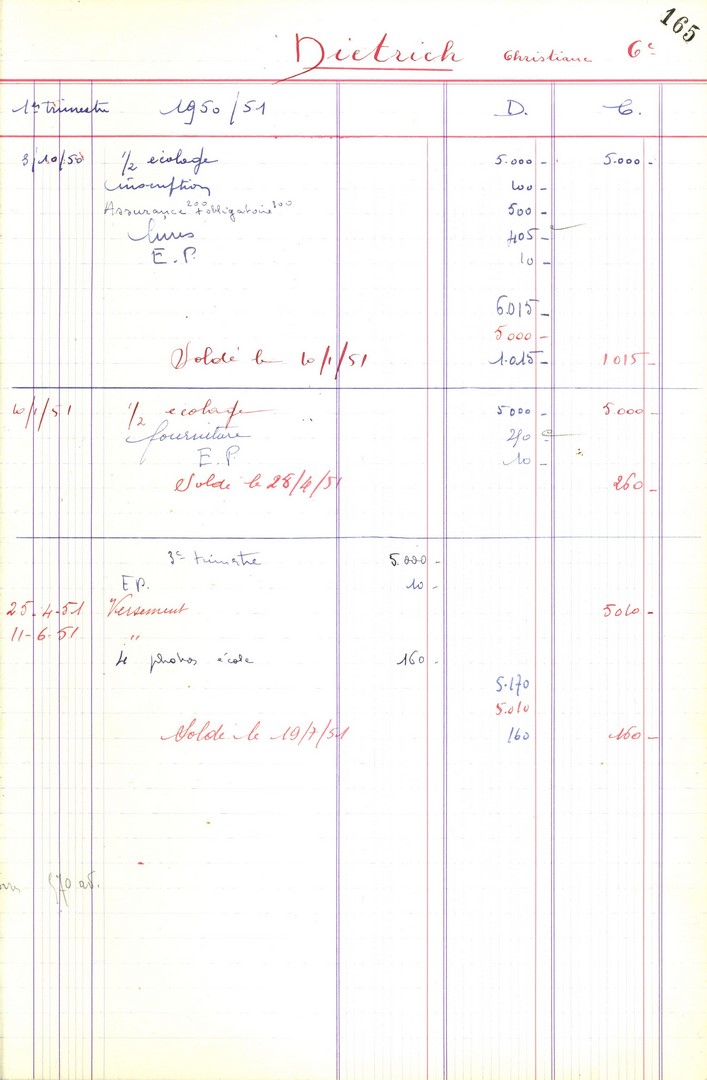 165
Dietrich Christiane 6e
1er trimestre 1950/51 D. C.
3/10/50 1/2 écolage 5.000 - 5.000 -
inscription 100 -
Assurance 200 + obligatoire 300 500 -
livres 405 -
E.P. 10 -
6.015 -
5.000 -
Soldé le 10/1/51 1.015 - 1015 -
10/1/51 1/2 écolage 5.000 - 5.000 -
fourniture
E.P. 10 -
Soldé le 28/4/51 260 -
3e trimestre 5.000 -
E.P. 10 -
25-4-51 Versement 5010 -
11-6-51 "
4 photos école 160 -
5.170
5.010
Soldé le 19/7/51 160 160 -